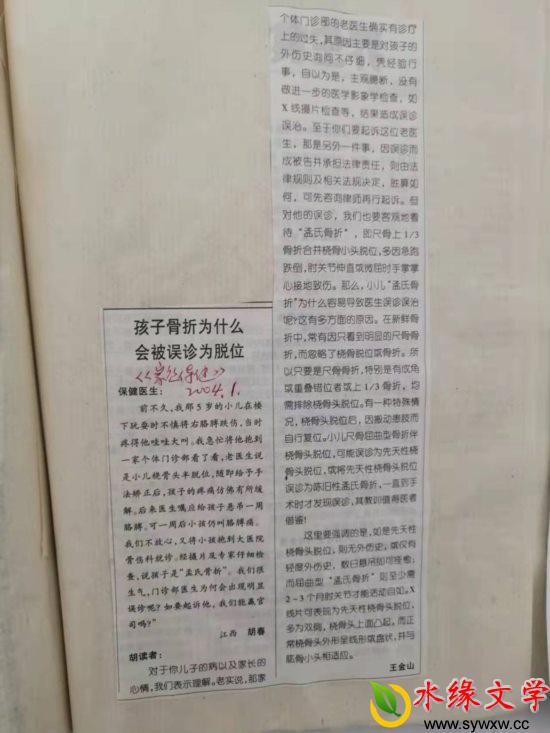 孩子骨折为什么
会被误诊为脱位
2004.1.
保健医生：
前不久，我那5岁的小儿在楼
下玩耍时不慎将右胳膊跌伤，当
时疼得他哇哇大叫。我急忙将他抱到
一家个体门诊部看了看，老医生说
是小儿桡骨头半脱位，随即给予手
法矫正后，孩子的疼痛仿佛有所缓
解。后来医生嘱应给孩子悬吊一周
胳膊。可一周后小孩仍叫胳膊痛。
我们不放心，又将小孩抱到大医院
骨伤科就诊。经摄片及专家仔细检
查，说孩子是“孟氏骨折”。我们很
生气，门诊部医生为何会出现明显
误诊呢？如要起诉他，我们能赢官
司吗？”
江西 胡春
胡读者：
对于你儿子的病以及家长的
心情，我们表示理解。老实说，那家
个体门诊部的老医生确实有诊疗
上的过失，其原因主要是对孩子的
外伤史询问不仔细，凭经验行
事，自以为是，主观臆断，没有
做进一步的医学影象学检查，如
X线摄片检查等，结果造成误诊
误治。至于你们要起诉这位老医
生，那是另外一件事，因误诊而
成被告并承担法律责任，则由法
律规则及相关法规决定，胜算如
何，可先咨询律师再行起诉。但
对他的误诊，我们也要客观地看
待“孟氏骨折”，即尺骨上1/3
骨折合并桡骨小头脱位，多因急跑
跌倒，肘关节伸直或微屈时手掌掌
心接地致伤。那么，小儿“孟氏骨
折”为什么容易导致医生误诊误治
呢？这有多方面的原因。在新鲜骨
折中，常有因只看到明显的尺骨骨
折，而忽略了桡骨脱位或骨折。所
以只要是尺骨骨折，特别是有成角
或重叠错位者或上1/3骨折，均
需排除桡骨头脱位。有一种特殊情
况，桡骨头脱位后，因搬动患肢而
自行复位。小儿尺骨屈曲型骨折伴
桡骨头脱位，可能误诊为先天性桡
骨头脱位，或将先天性桡骨头脱位
误诊为陈旧性孟氏骨折，一直到手
术时才发现误诊，其教训值得医者
借鉴！
这里要强调的是，如是先天性
桡骨头脱位，则无外伤史，或仅有
轻度外伤史，数日悬吊即可痊愈；
而屈曲型“孟氏骨折”则至少需
2-3个月肘关节才能活动自如。X
线片可表现为先天性桡骨头脱位，
多为双侧，桡骨头上面凸起，而正
常桡骨头外形呈线形或盘状，并与
肱骨小头相适应。
王金山
水缘文学
www.sywxw.cc